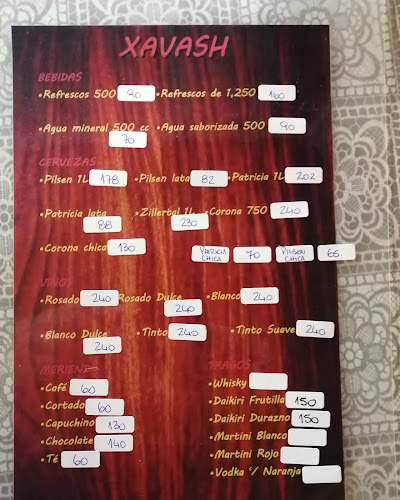 XAVASH
BEBIDAS
•Refrescos 500 90 •Refrescos de 1,250 160
•Agua mineral 500 cc 70 •Agua saborizada 500 90
CERVEZAS
•Pilsen 1L 178 •Pilsen lata 82 •Patricia 1L 202
•Patricia lata 88 •Zillertal 1L 230 •Corona 750 240
•Corona chica 130 PATRICIA CHICA 70 PILSEN CHICA 65
VINOS
•Rosado 240 Rosado Dulce 240 •Blanco 240
•Blanco Dulce 240 •Tinto 240 •Tinto Suave 240
MERIENDA
•Café 60
•Cortado 60
•Capuchino 130
•Chocolate 140
•Té 60
TRAGOS
•Whisky
•Daikiri Frutilla 150
•Daikiri Durazno 150
•Martini Blanco
•Martini Rojo
•Vodka c/ Naranja